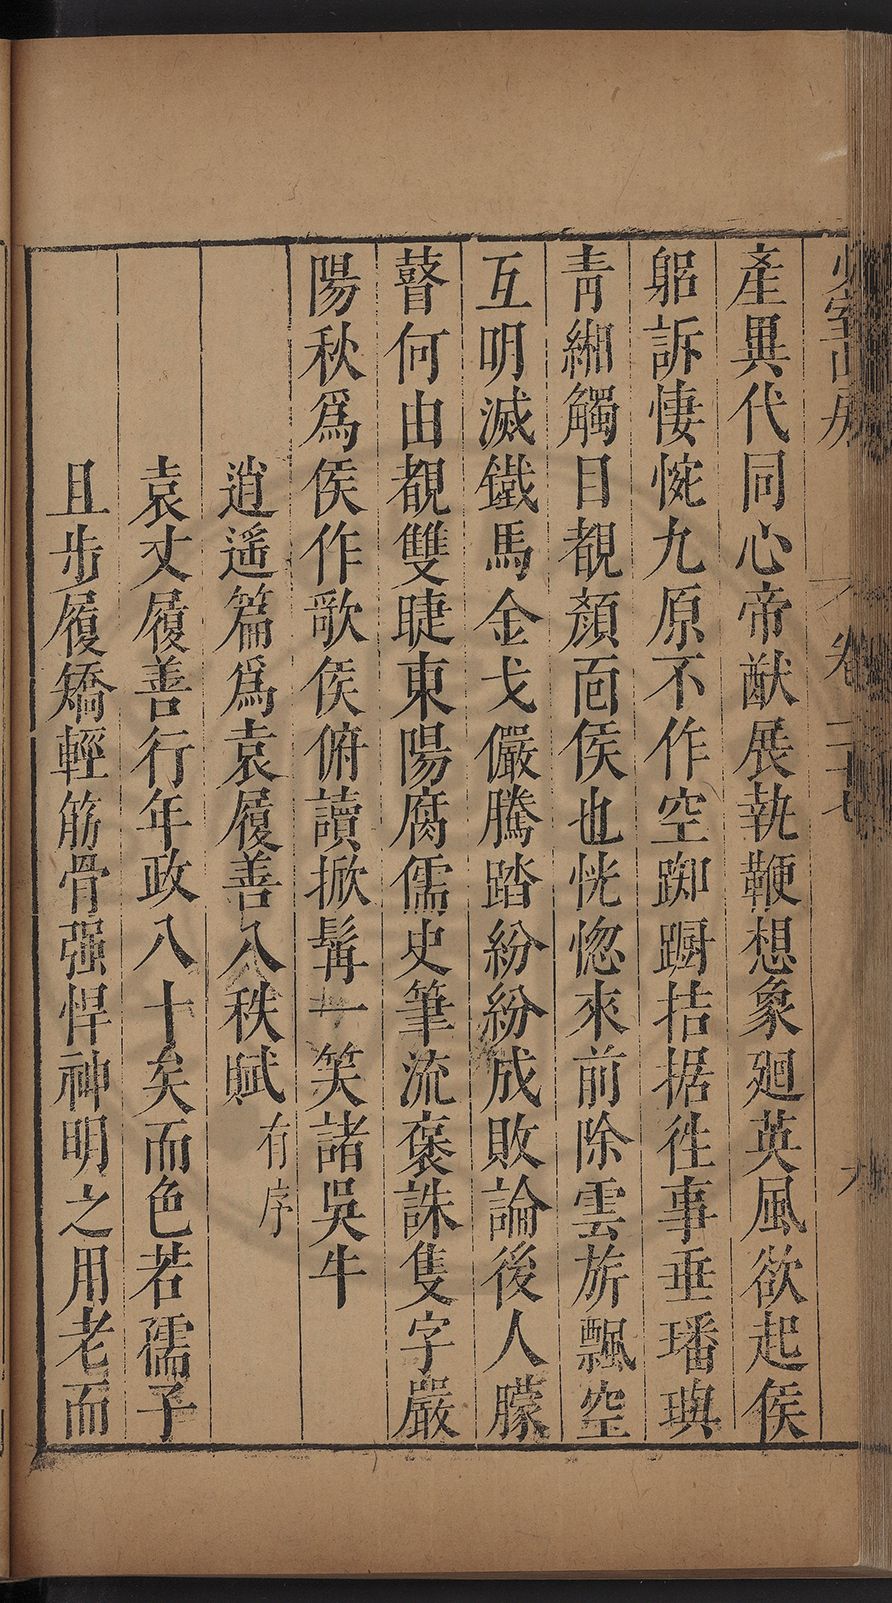 產異代同心帝猷展執鞭想象廻英風欲起侯
躳訴悽惋九原不作空踟躕拮据徃事垂璠璵
青緗觸目覩顏面侯也恍惚來前除雲旂飄空
互明滅鐵馬金戈儼騰踏紛紛成敗論後人朦
瞽何由覩雙睫東陽腐儒史筆流褒誅隻字嚴
陽秋爲侯作歌侯俯讀掀髯一笑諸吳牛
逍遥篇爲袁履善八秩賦 有序
袁丈履善行年政八十矣而色若孺子
且步履矯輕筋骨强悍神明之用老而